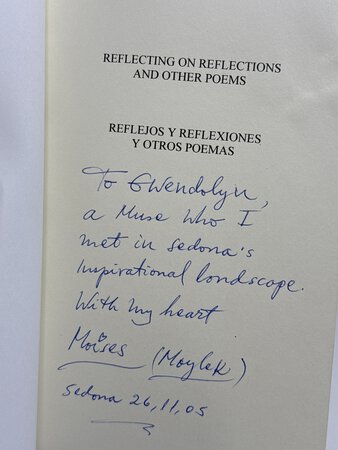 REFLECTING ON REFLECTIONS
AND OTHER POEMS
REFLEJOS Y REFLEXIONES
Y OTROS POEMAS
To Gwendolyn,
a Muse who I
met in Sedona's
inspirational londscape.
With my heart
Moises (Moylek)
Sedona 26,11,05